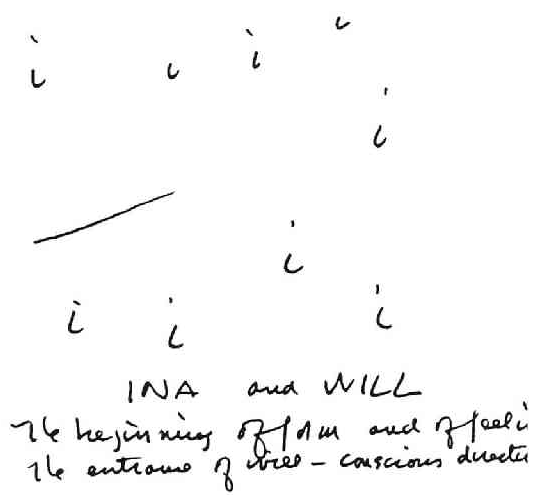 i
i ι i ι
i
i
i i i
INA and WILL
The beginning of form and of feeli
The entrance of will - conscious directi